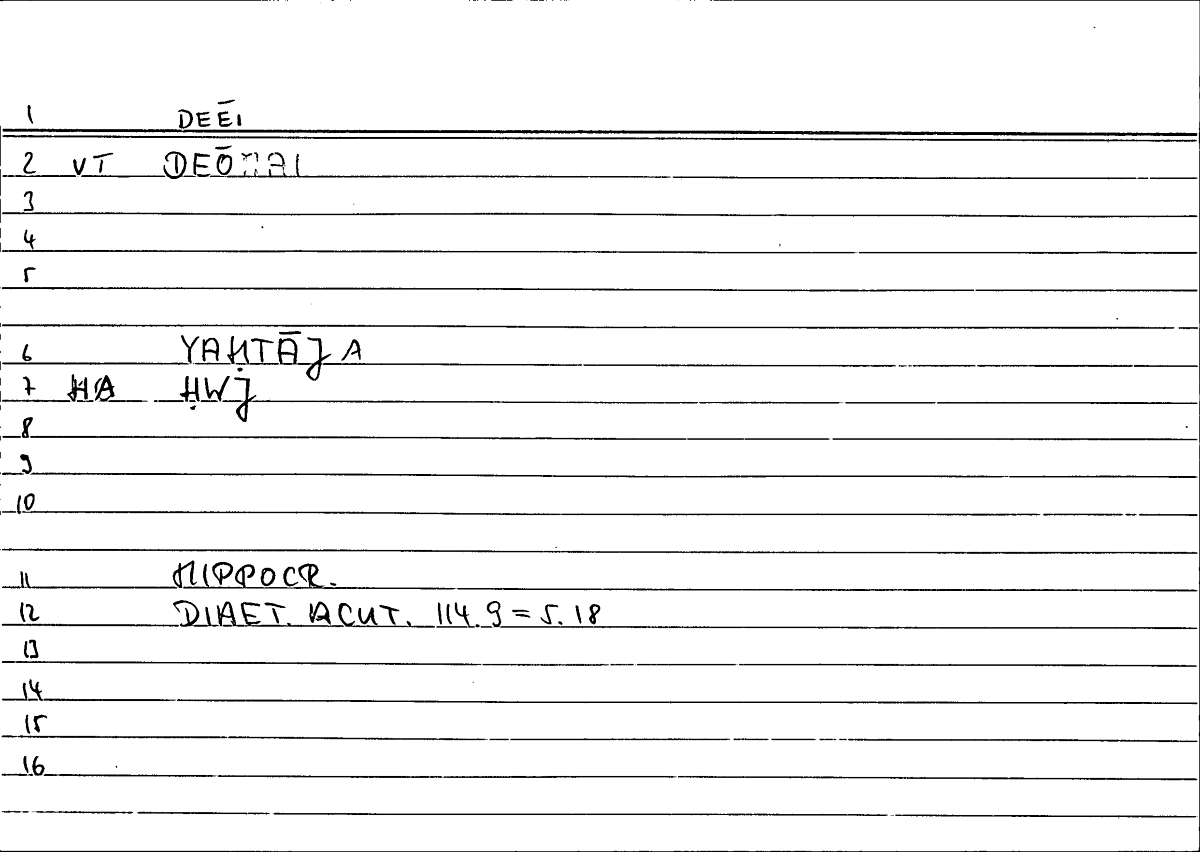 1 DEĒI
2 VT DEŌMAI
3
4
5
6 YAḤTĀJ A
7 HA ḤWJ
8
9
10
11 HIPPOCR.
12 DIAET. ACUT. 114.9 = 5.18
13
14
15
16